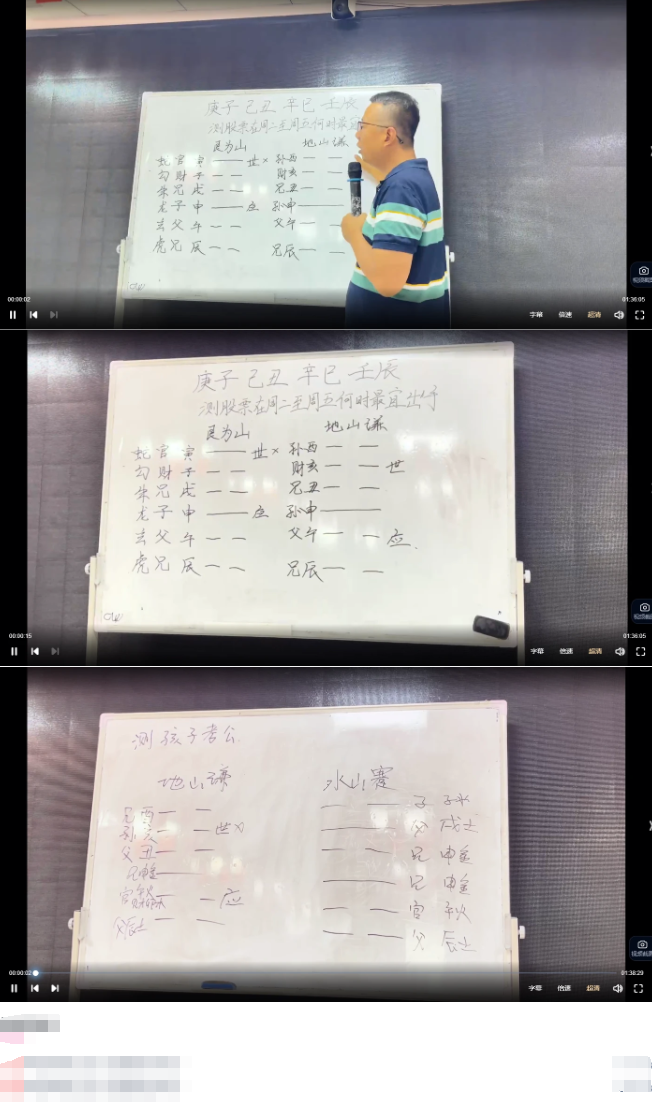 庚子 己丑 辛巳 壬辰
测股票在周二至周五何时最宜
艮为山 地山谦
蛇官寅 世× 孙酉
勾财子 财亥
朱兄戌 兄丑
龙子申 应 孙申
玄父午 父午
虎兄辰 兄辰
00:00:02 01:36:05
字幕 倍速 超清
庚子 己丑 辛巳 壬辰
测股票在周二至周五何时最宜出手
艮为山 地山谦
蛇官寅 世× 孙酉
勾财子 财亥 世
朱兄戌 兄丑
龙子申 应 孙申
玄父午 父午 应
虎兄辰 兄辰
00:00:15 01:36:05
字幕 倍速 超清
测孩子考公
地山谦 水山蹇
兄酉 子 子水
孙亥 世 父 戌土
父丑 兄 申金
兄申金 兄 申金
应 官 午火
父辰土 父 辰土
00:00:02 01:38:29
字幕 倍速 超清